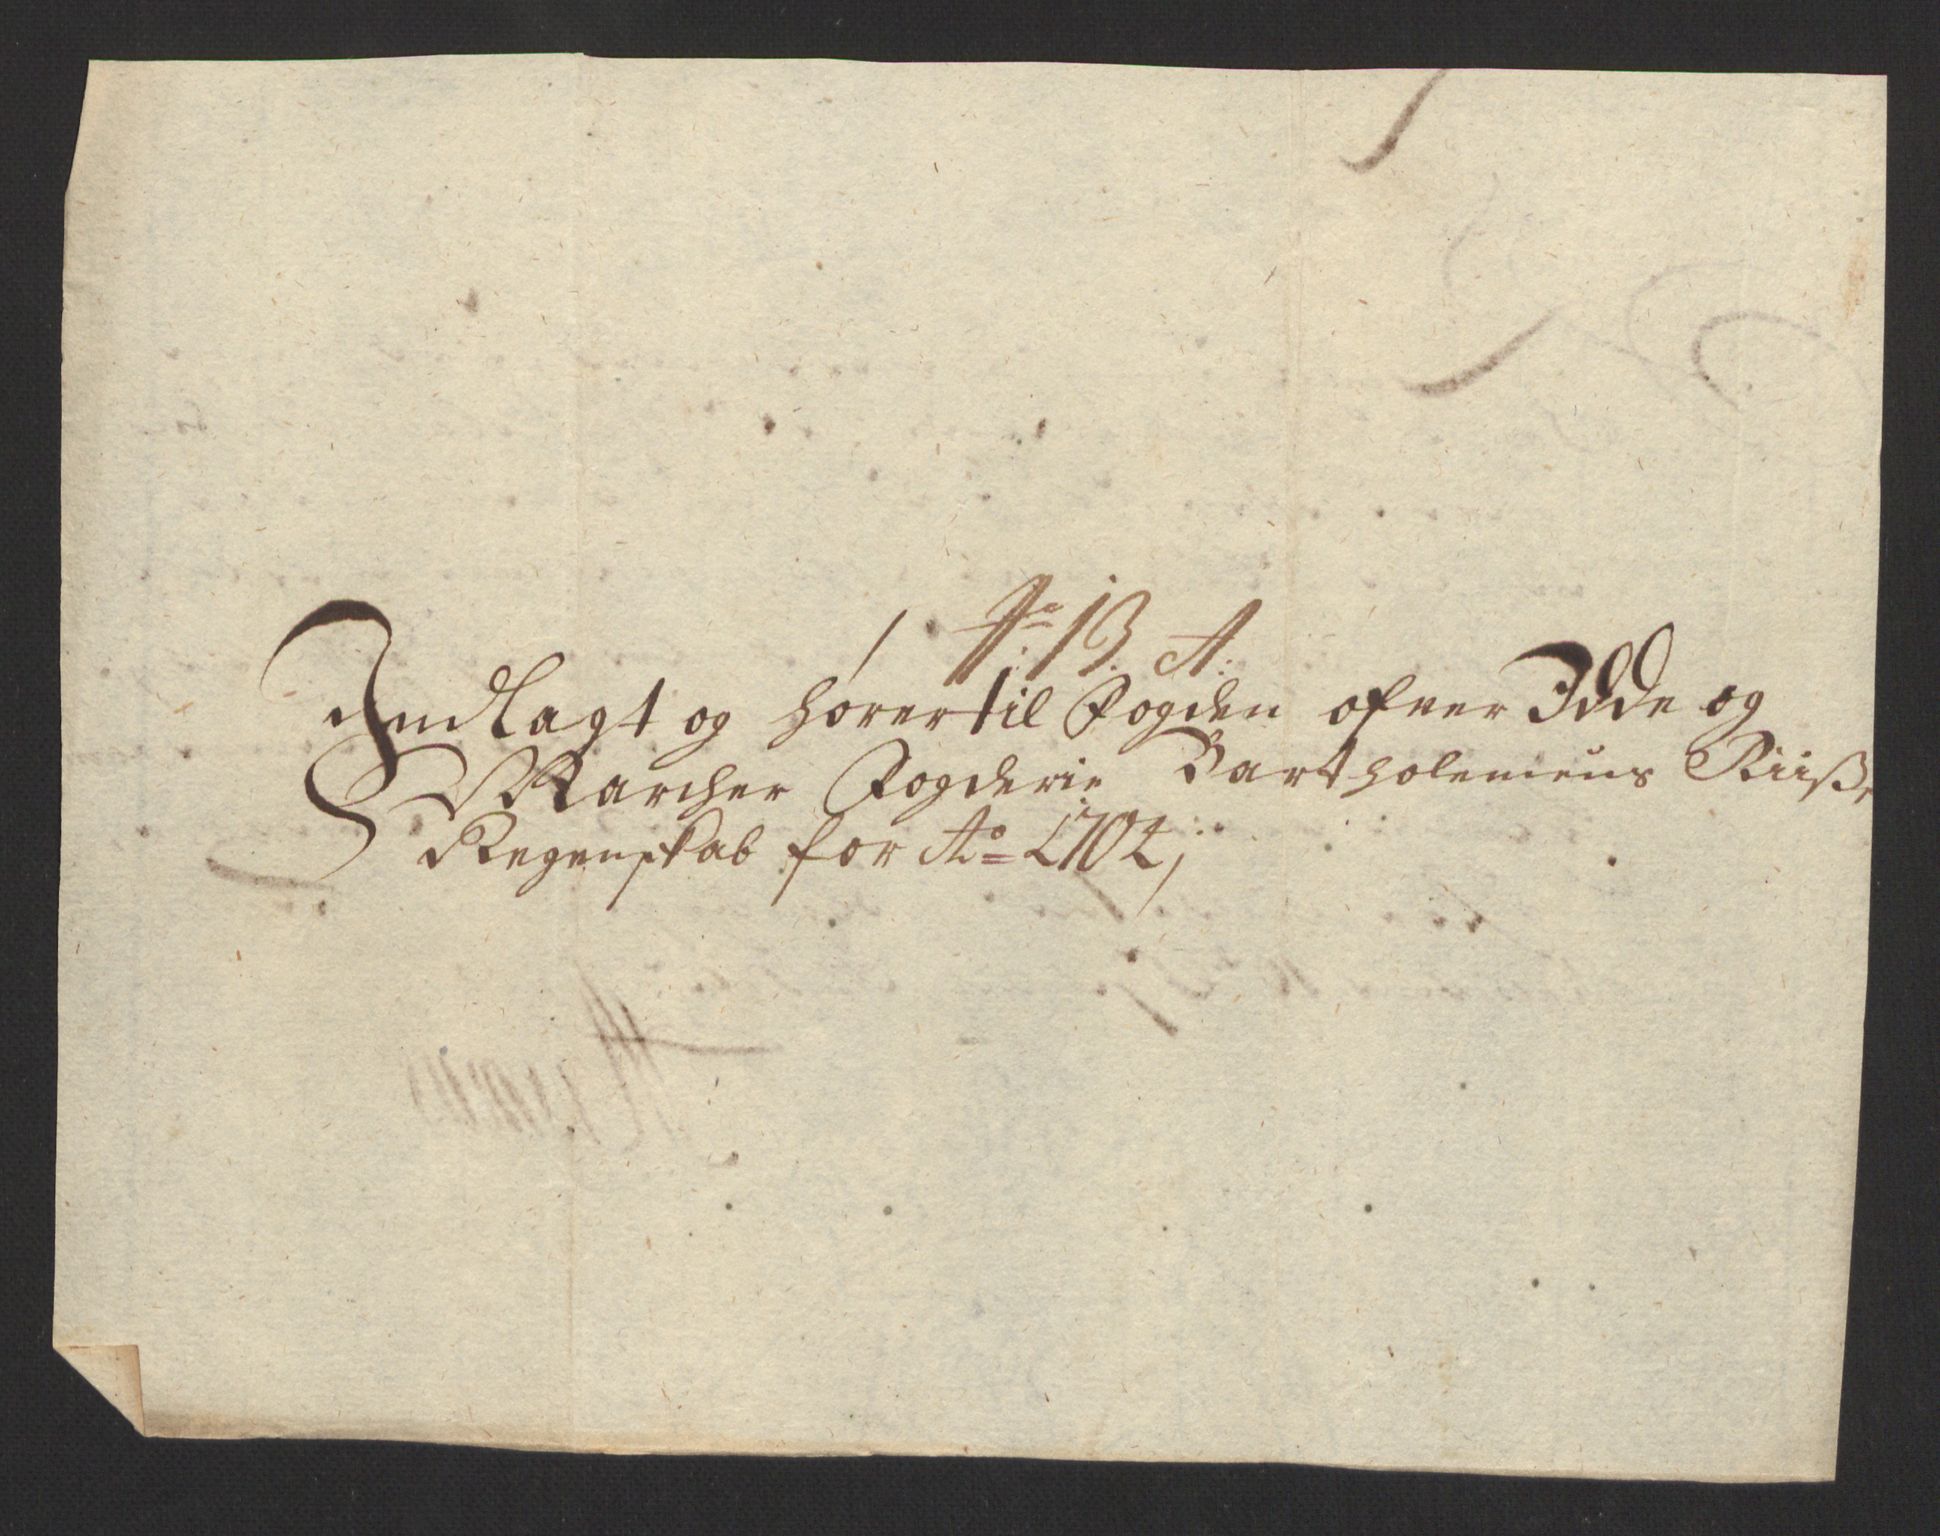 No 13. A:
Indlagt og hører til Fogden ofver Idde og
Marcher Fogderie Bartholemeus Riis,
Regenskab for Ao 1704,